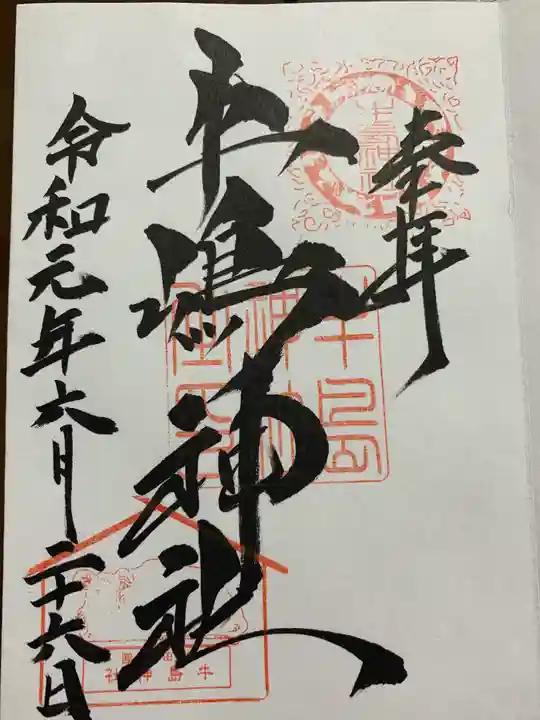 奉拝
牛嶋神社
令和元年六月二十六日
牛嶋神社
牛島神社